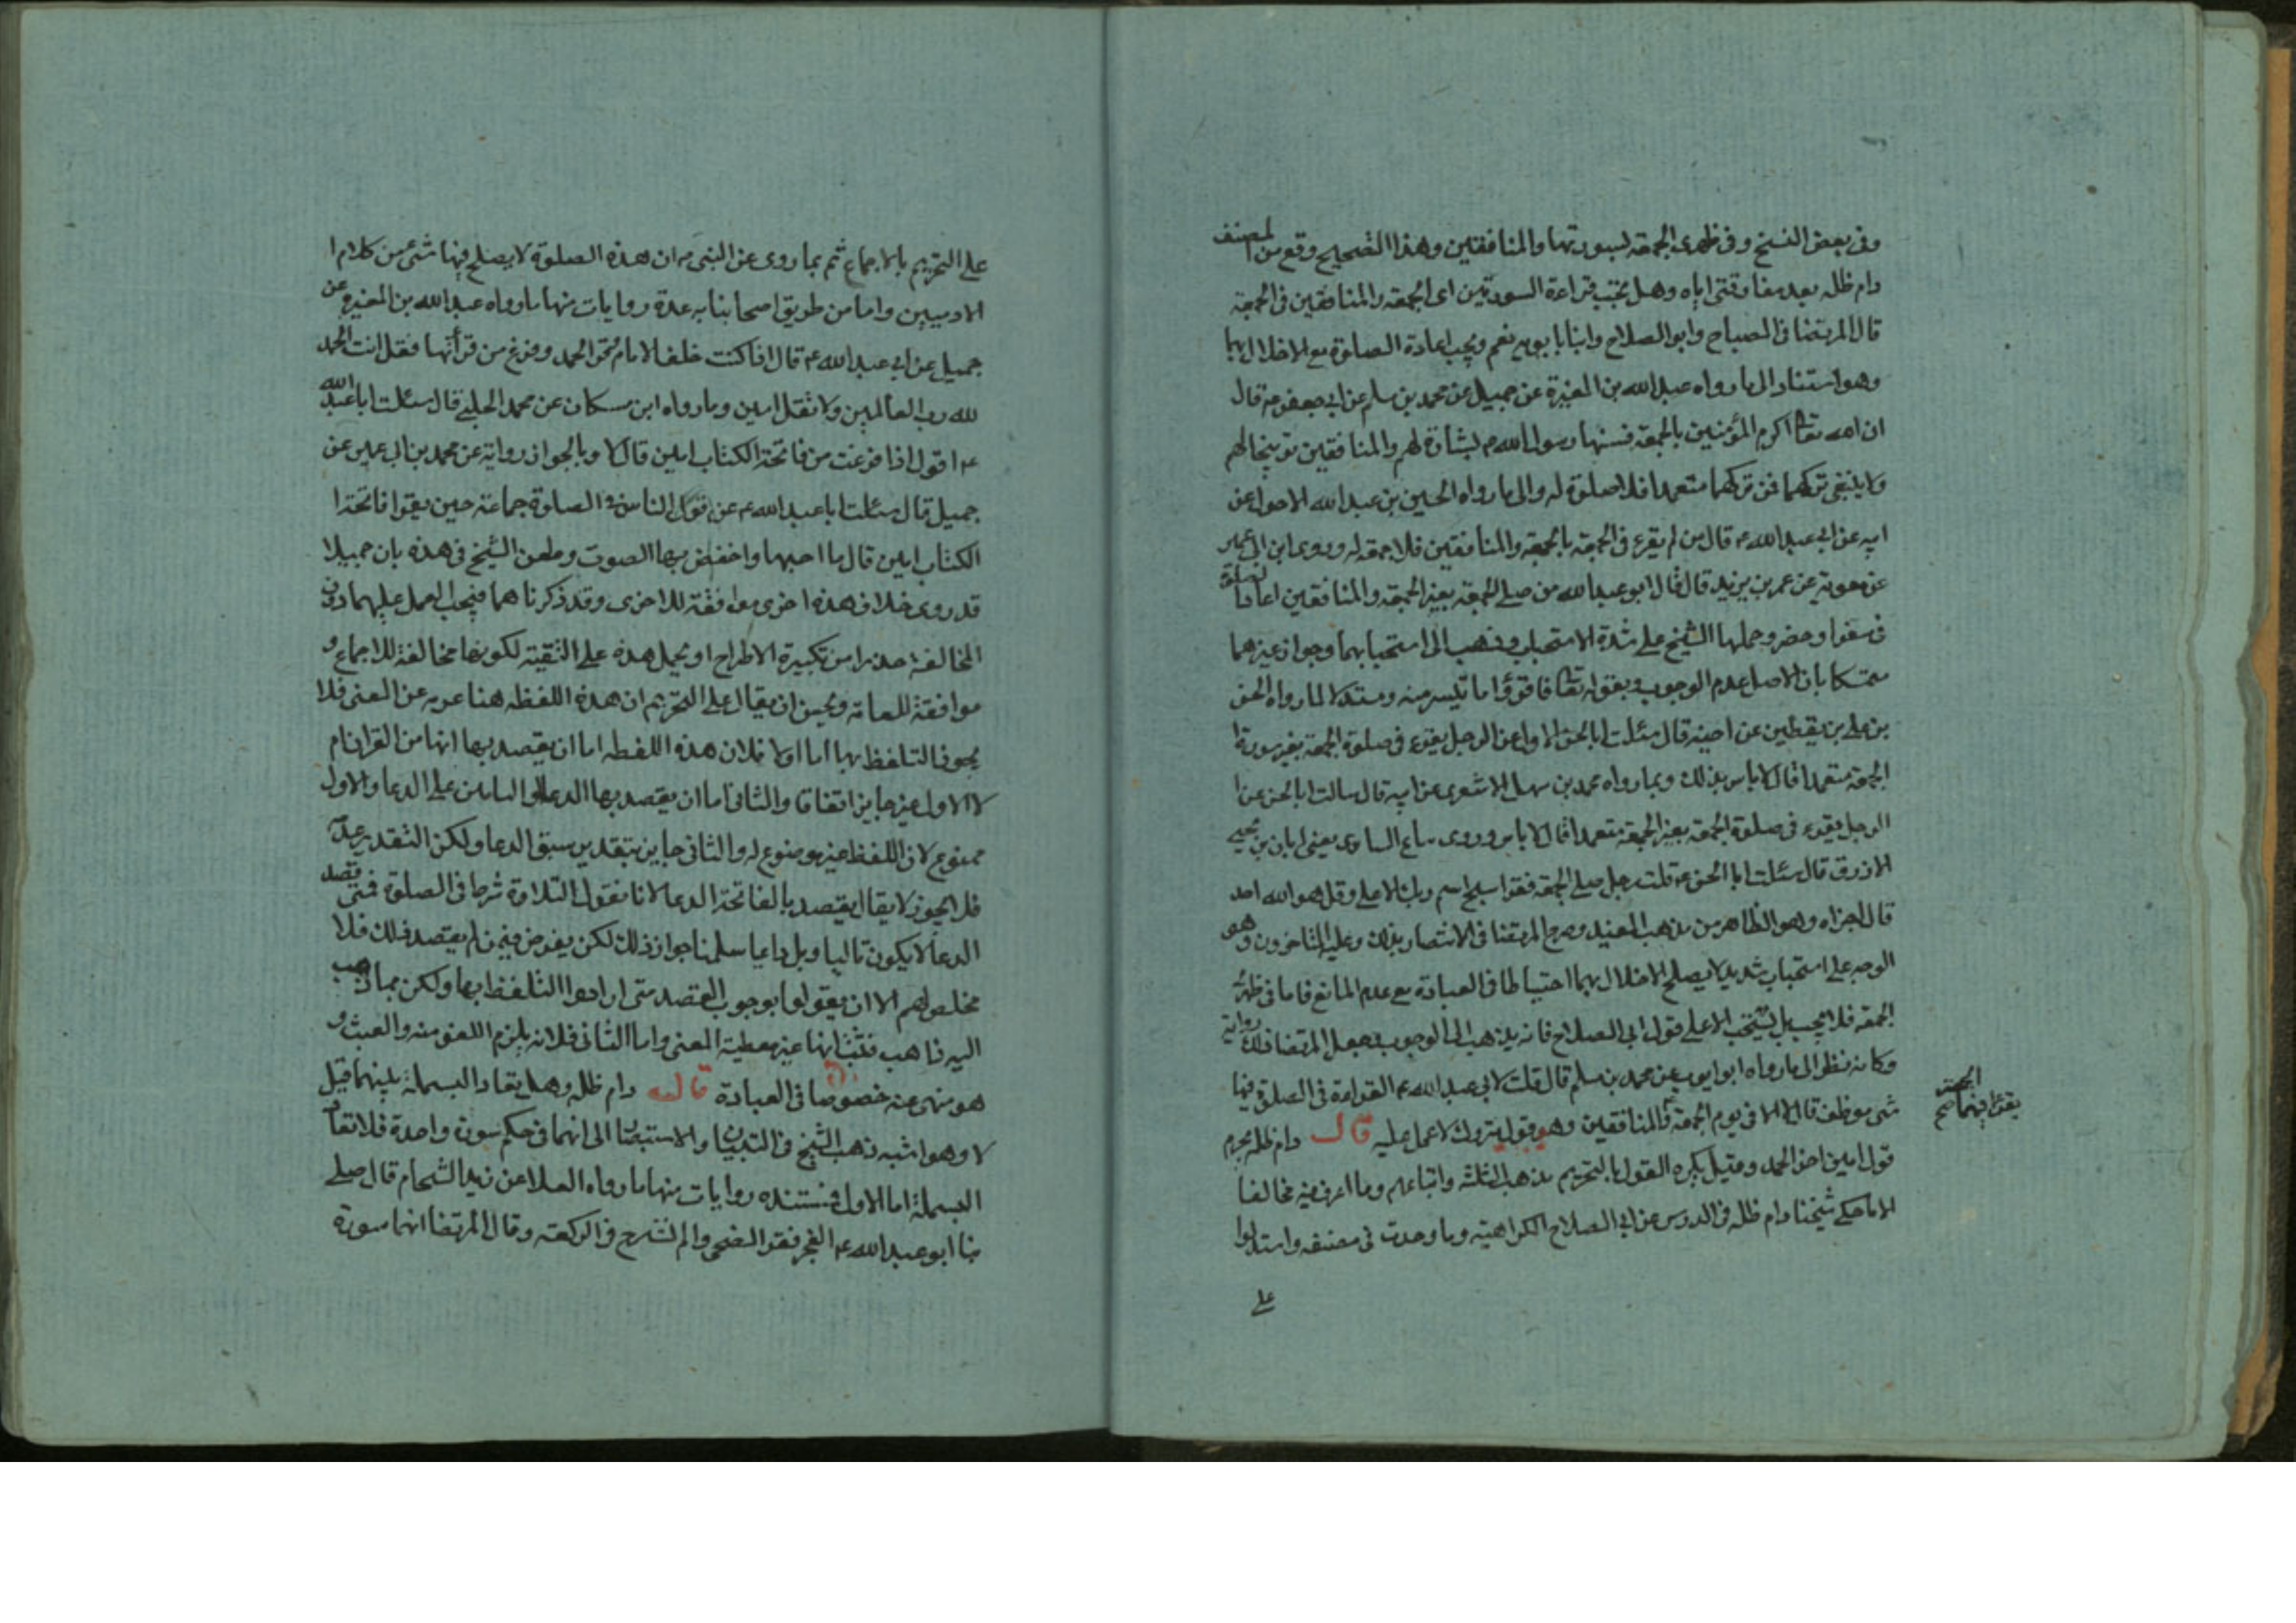 وفى بعض النسخ وفى ظهرى الجمعة بسورتها والمنافقين وهذا التصحيح وقع من المصنف
دام ظله بعد مفارقتى اياه وهل يجب قراءة السورتين اى الجمعة والمنافقين فى الجمعة
قال المرتضا فى المصباح وابو الصلاح وابنا بابويه نعم ويجب اعادة الصلوة مع الاخلال بها
وهو استناد الى ما رواه عبد الله بن المغيرة عن جميل عن محمد بن مسلم عن ابى جعفر ع قال
ان الله تعالى اكرم المؤمنين بالجمعة فسنها رسول الله ص بشارة لهم والمنافقين توبيخا لهم
ولا ينبغى تركهما فمن تركهما متعمدا فلا صلوة له والى ما رواه الحسين بن عبد الله الاحول عن
ابيه عن ابى عبد الله ع قال من لم يقرء فى الجمعة بالجمعة والمنافقين فلا جمعة له وروى ابن ابى عمير
عن معوية عن عمر بن يزيد قال قال ابو عبد الله من صلى الجمعة بغير الجمعة والمنافقين اعاد الصلوة
فى سفر او حضر وحملها الشيخ على شدة الاستحباب وذهب الى استحبابهما وجواز غيرهما
متمسكا بان الاصل عدم الوجوب وبقوله تعالى فاقرؤا ما تيسر منه ومستدلا لما رواه الحسن
بن على بن يقطين عن اخيه قال سئلت ابا الحسن الاول عن الرجل يقرء فى صلوة الجمعة بغير سورة ا
الجمعة متعمدا قال لا باس بذلك وبما رواه محمد بن سهل الاشعرى عن ابيه قال سالت ابا الحسن عن ا
الرجل يقرء فى صلوة الجمعة بغير الجمعة متعمدا قال لا باس وروى سباع الساوى يعنى ابان بن يحيى
الازرق قال سئلت ابا الحسن ع قلت رجل صلى الجمعة فقرا سبح اسم ربك الاعلى وقل هو الله احد
قال اجزاه وهو الظاهر من مذهب المفيد وصرح المرتضا فى الانتصار بذلك وعليه المتاخرون وهو
الوجه على استحباب شديد لا يصلح الاخلال بهما احتياطا فى العبادة مع عدم المانع فاما فى ظهر
الجمعة فلا يجب بل يستحب الا على قول ابى الصلاح فانه يذهب الى الوجوب وجعل المرتضا ذلك رواية
وكانه نظر الى ما رواه ابو ايوب عن محمد بن مسلم قال قلت لابى عبد الله ع القراءة فى الصلوة فيها
شى موظف قال لا الا فى يوم الجمعة والمنافقين وهو قول متروك لا عمل عليه قال دام ظله يحرم
قول امين اخر الحمد وقيل يكره القول بالتحريم مذهب الثلثة واتباعهم وما اعرف فيه مخالفا
الا ما حكى شيخنا دام ظله فى الدرس عن ابى الصلاح الكراهية وما وجدت فى مصنفه واستدلوا
على
الجمعة
يقرا فيهما صح
على التحريم بالاجماع ثم بما روى عن النبى ص ان هذه الصلوة لا يصلح فيها شئ من كلام ا
الادميين واما من طريق اصحابنا به عدة روايات منها ما رواه عبد الله بن المغيرة عن
جميل عن ابى عبد الله ع قال اذا كنت خلف الامام فقرا الحمد وفرغ من قرأتها فقل انت الحمد
لله رب العالمين ولا تقل امين وما رواه ابن مسكان عن محمد الحلبى قال سئلت ابا عبد الله
ع اقول اذا فرغت من فاتحة الكتاب امين قال لا وبالجواز رواية عن محمد بن ابى عمير عن
جميل قال سئلت ابا عبد الله ع عن قول الناس فى الصلوة جماعة حين يقرا فاتحة ا
الكتاب امين قال ما احبها واخفض بها الصوت وطعن الشيخ فى هذه بان جميلا
قد روى خلاف هذه اخرى موافقة للاخرى وقد ذكرناهما فيجب العمل عليهما دون
المخالفة حذرا من تكبيرة الاطراح او يحمل هذه على التقية لكونها مخالفة للاجماع و
موافقة للعامة ويحسن ان يقال على التحريم ان هذه اللفظه هنا عريه عن المعنى فلا
يجوز التلفظ بها اما اولا فلان هذه اللفظه اما ان يقصد بها انها من القران ام
لا الاول غير جايز اتفاقا والثانى اما ان يقصد بها الدعاء او التامين على الدعا والاول
ممنوع لان اللفظ غير موضوع له والثانى جايز بتقدير سبق الدعا ولكن التقدير عدمه
فلا يجوز لا يقال يقصد بالفاتحة الدعا لانا نقول التلاوة شرط فى الصلوة فمتى قصد
الدعا لا يكون تاليا وبل داعيا سلمنا جواز ذلك لكن يفرض فيمن لم يقصد ذلك فلا
مخلص لهم الا ان يقولوا بوجوب القصد متى ارادوا التلفظ بها ولكن مما ذهب
اليه ذاهب فثبت انها غير معطية المعنى واما الثانى فلانه يلزم اللغو منه والعبث و
هو منهى عنه خصوصا فى العبادة قال دام ظله وهل يعاد البسملة بينهما قيل
لا وهو اشبه ذهب الشيخ فى التبيان والاستبصار الى انهما فى حكم سورة واحدة فلا تعاد
البسملة اما الاول فمستنده روايات منها ما رواه العلا عن زيد الشحام قال صلى
بنا ابو عبد الله ع الفجر فقرا الضحى والم نشرح فى الركعة وقال المرتضا انهما سورة